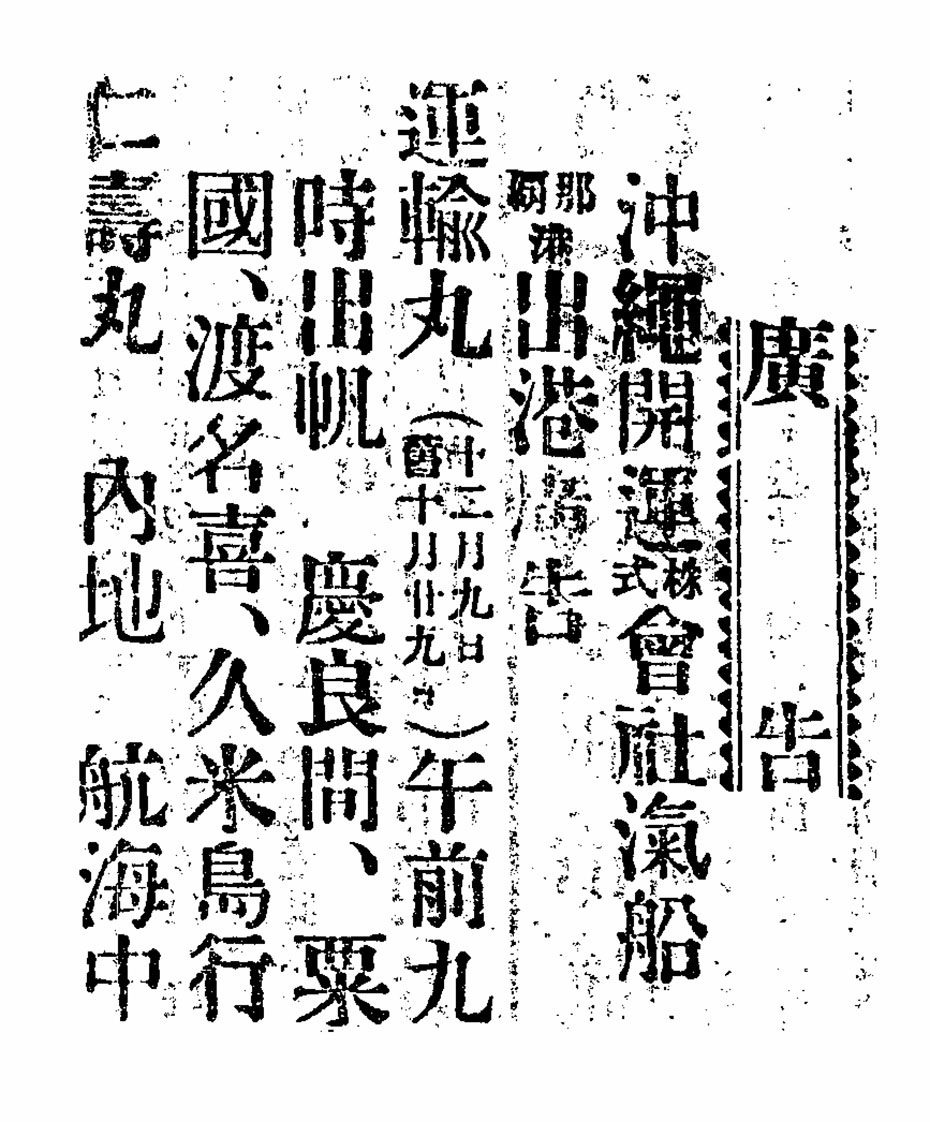 廣告
沖繩開運株式會社滊船
那覇港出港廣告
運輸丸（十二月九日舊十月廿九日）午前九
時出帆 慶良間、粟
國、渡名喜、久米島行
仁壽丸 內地 航海中